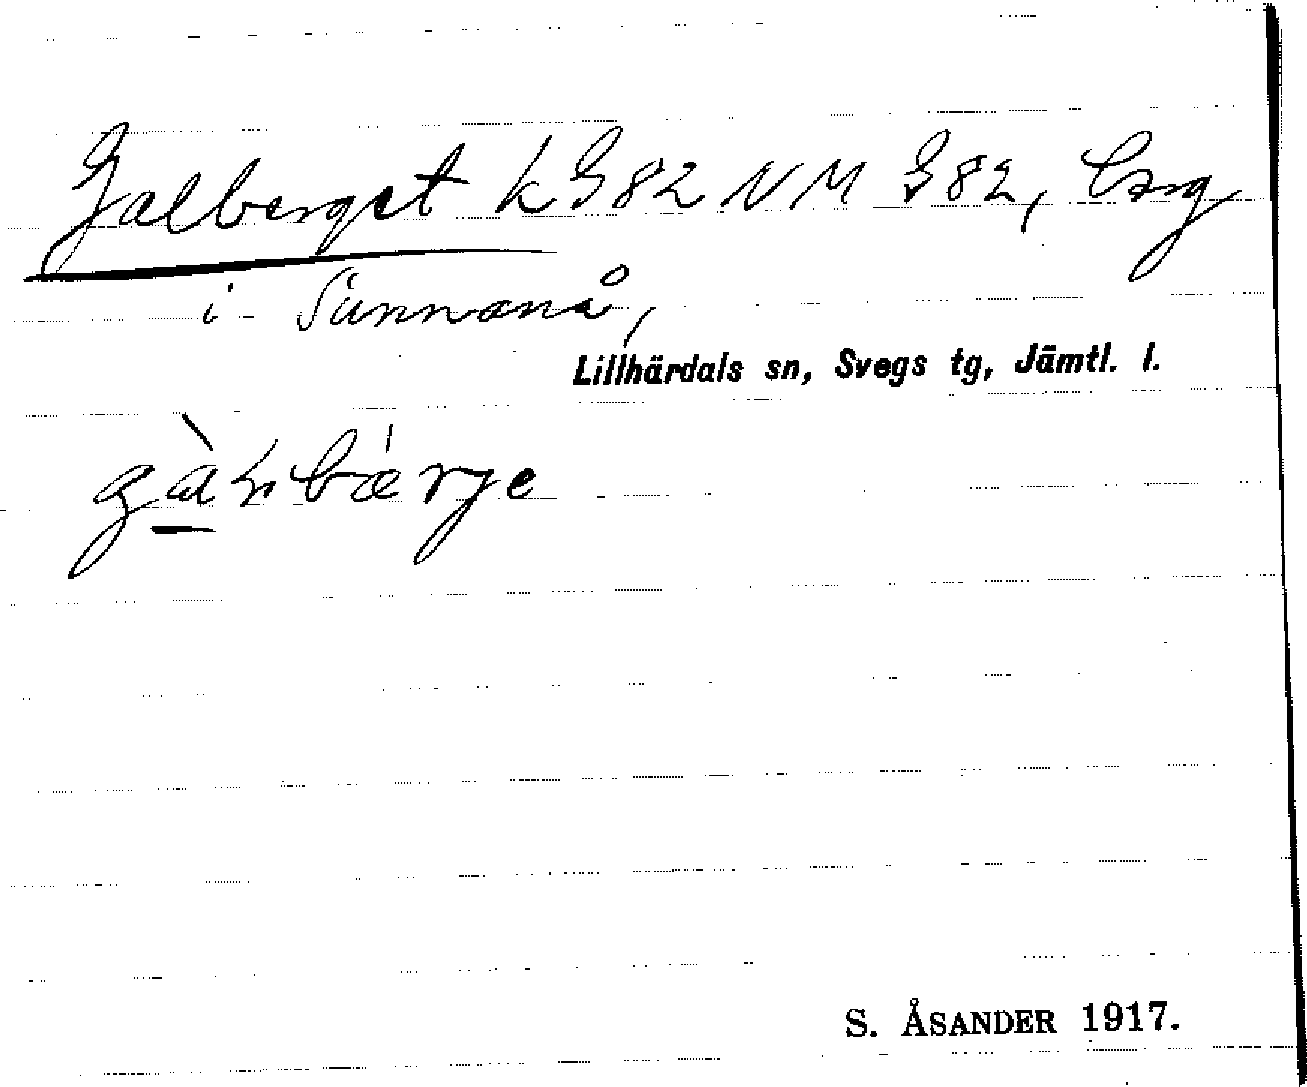 Galberget k G82 NV M G82, brg
i Sunnanå,
Lillhärdals sn, Svegs tg, Jämtl. l.
S. ÅSANDER 1917.